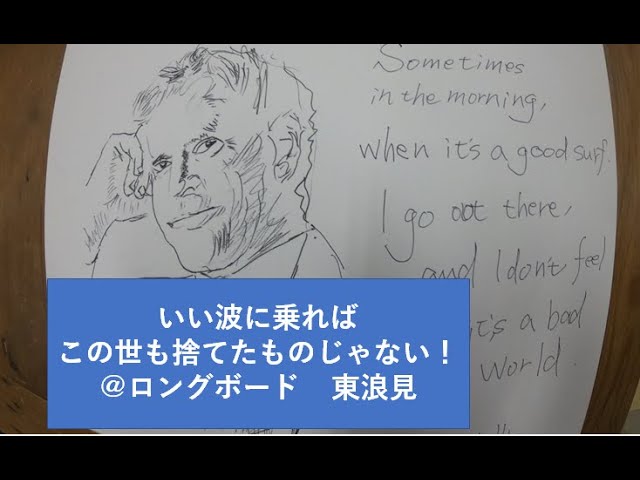 Sometimes
in the morning,
when it's a good surf.
I go out there,
and I don't feel
it's a bad
world.
いい波に乗れば
この世も捨てたものじゃない！
＠ロングボード　東浪見